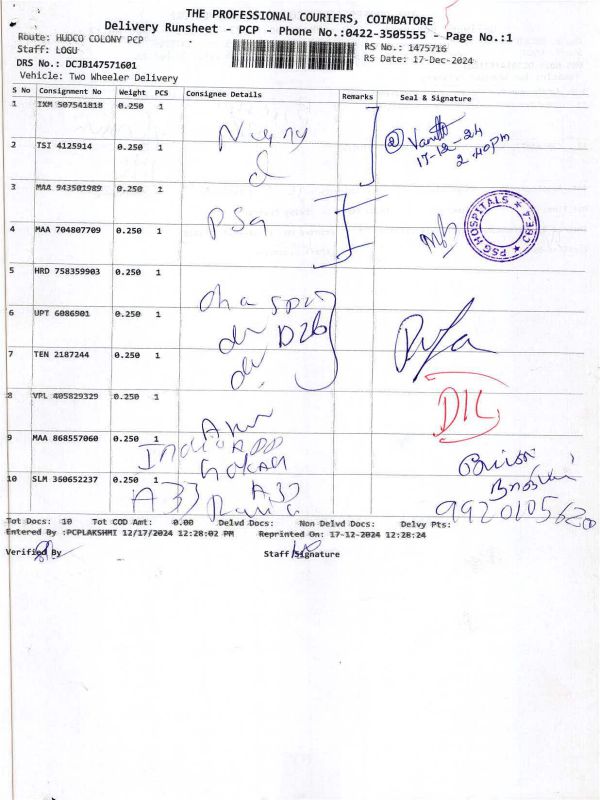 THE PROFESSIONAL COURIERS, COIMBATORE
Delivery Runsheet - PCP - Phone No.:0422-3505555 - Page No.:1
Route: HUDCO COLONY PCP
Staff: LOGU
RS No.: 1475716
DRS No.: DCJB147571601
RS Date: 17-Dec-2024
Vehicle: Two Wheeler Delivery
S No Consignment No Weight PCS Consignee Details Remarks Seal & Signature
1 IXM 507541818 0.250 1
2 TSI 4125914 0.250 1
17-12-24
2.40pm
3 MAA 943501989 0.250 1
PSG
4 MAA 704807709 0.250 1
PSG HOSPITALS
CBE-4
5 HRD 758359903 0.250 1
6 UPT 6086901 0.250 1
D26
7 TEN 2187244 0.250 1
8 VPL 405829329 0.250 1
DIL
9 MAA 868557060 0.250 1
10 SLM 360652237 0.250 1
A33 A33
Tot Docs: 10 Tot COD Amt: 0.00 Delvd Docs: Non Delvd Docs: Delvy Pts:
Entered By :PCPLAKSHMI 12/17/2024 12:28:02 PM Reprinted On: 17-12-2024 12:28:24
Verified By Staff Signature